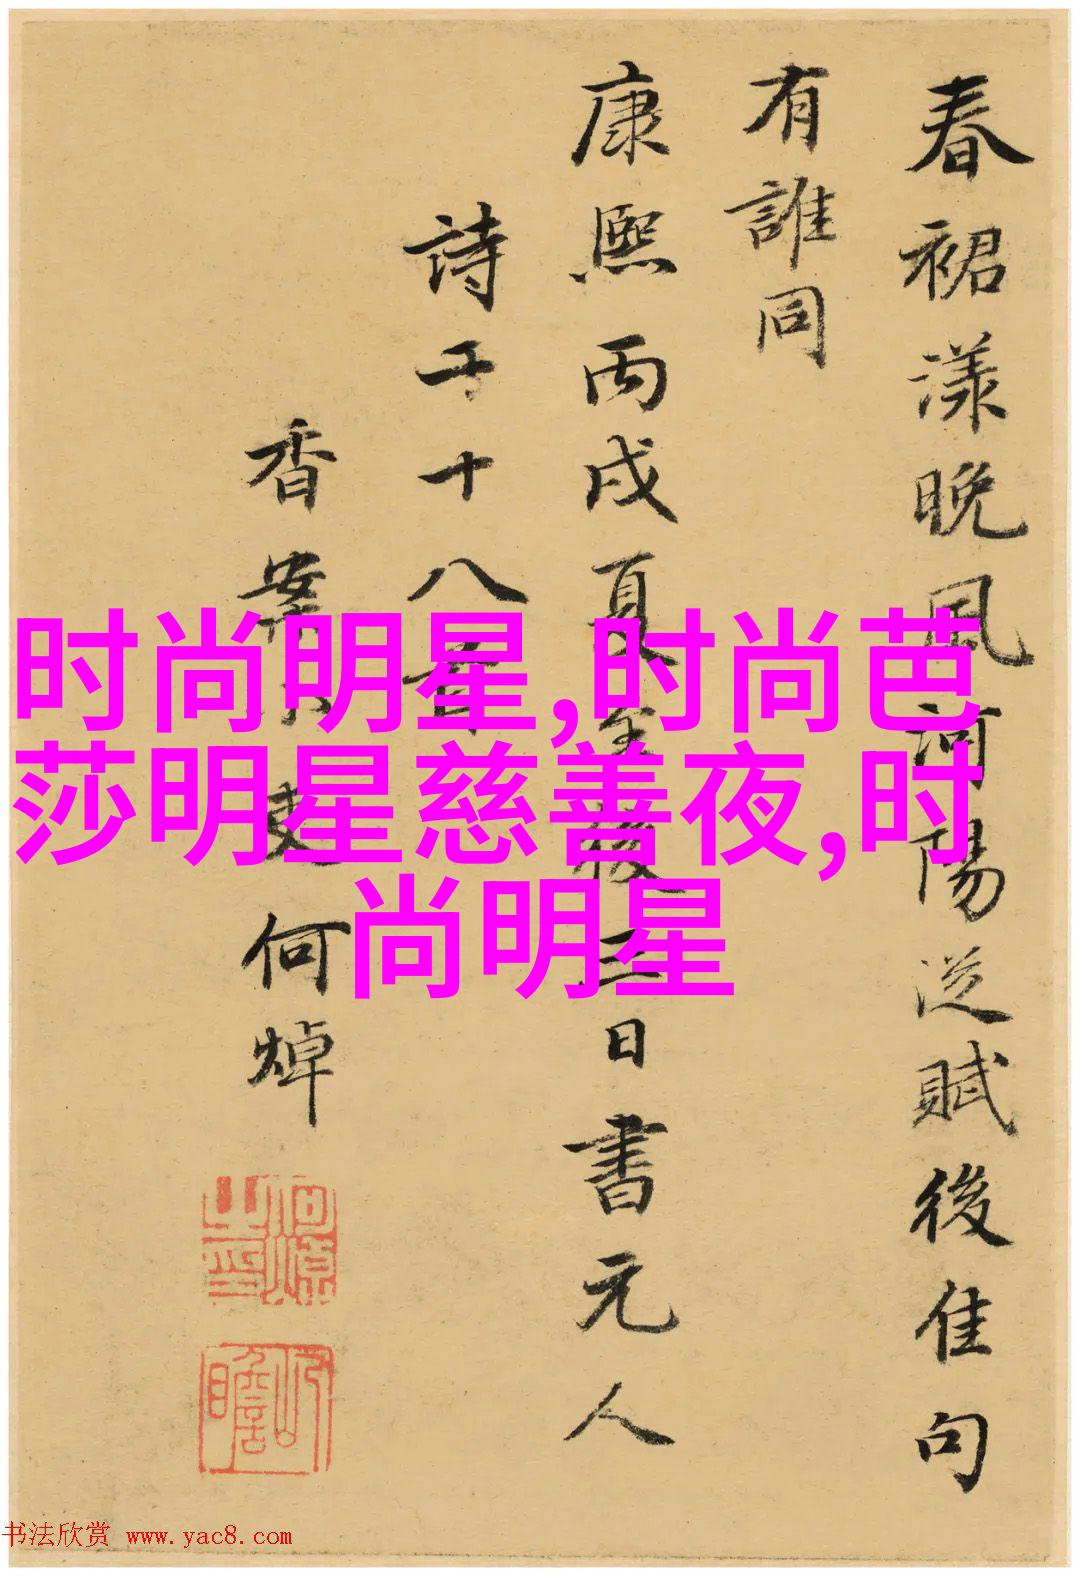 春裙漾晚風河陽從賦後佳句
有誰同
康熙丙戌夏至後三日書元人
詩于十八
香案小吏何焯
时尚明星,时尚芭
莎明星慈善夜,时
尚明星
书法欣赏 www.yac8.com